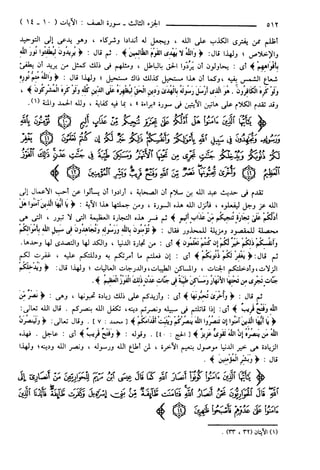 ٥١٢ الجزء الثالث - سورة الصف : الآيات ( ١٠ - ١٤ )
أظلم ممن يفترى الكذب على الله ، ويجعل له أندادا وشركاء ، وهو يدعى إلى التوحيد
والإخلاص ؛ ولهذا قال: ﴿ وَاللَّهُ لا يَهْدِي الْقَوْمَ الظَّالِمِينَ ﴾ . ثم قال : ﴿ يُرِيدُونَ لِيُطْفِئُوا نُورَ اللَّهِ
بِأَفْوَاهِهِمْ ﴾ أى : يحاولون أن يردُّوا الحق بالباطل ، ومثلهم فى ذلك كمثل من يريد أن يطفئ
شعاع الشمس بفيه ، وكما أن هذا مستحيل كذلك ذاك مستحيل ؛ ولهذا قال : ﴿ وَاللَّهُ مُتِمُّ نُورِهِ
وَلَوْ كَرِهَ الْكَافِرُونَ . هُوَ الَّذِي أَرْسَلَ رَسُولَهُ بِالْهُدَىٰ وَدِينِ الْحَقِّ لِيُظْهِرَهُ عَلَى الدِّينِ كُلِّهِ وَلَوْ كَرِهَ الْمُشْرِكُونَ ﴾ ،
وقد تقدم الكلام على هاتين الآيتين فى سورة «براءة » ، بما فيه كفاية ، ولله الحمد والمنة (١).
يَا أَيُّهَا الَّذِينَ آمَنُوا هَلْ أَدُلُّكُمْ عَلَىٰ تِجَارَةٍ تُنجِيكُم مِّنْ عَذَابٍ أَلِيمٍ ۝ تُؤْمِنُونَ بِاللَّهِ
وَرَسُولِهِ وَتُجَاهِدُونَ فِي سَبِيلِ اللَّهِ بِأَمْوَالِكُمْ وَأَنفُسِكُمْ ذَٰلِكُمْ خَيْرٌ لَّكُمْ إِن كُنتُمْ تَعْلَمُونَ ۝
يَغْفِرْ لَكُمْ ذُنُوبَكُمْ وَيُدْخِلْكُمْ جَنَّاتٍ تَجْرِي مِن تَحْتِهَا الْأَنْهَارُ وَمَسَاكِنَ طَيِّبَةً فِي جَنَّاتِ عَدْنٍ ذَٰلِكَ الْفَوْزُ
الْعَظِيمُ ۝ وَأُخْرَىٰ تُحِبُّونَهَا نَصْرٌ مِّنَ اللَّهِ وَفَتْحٌ قَرِيبٌ وَبَشِّرِ الْمُؤْمِنِينَ ۝
تقدم فى حديث عبد الله بن سلام أن الصحابة ، أرادوا أن يسألوا عن أحب الأعمال إلى
الله عز وجل ليفعلوه ، فأنزل الله هذه السورة ، ومن جملتها هذا الآية : ﴿ يَا أَيُّهَا الَّذِينَ آمَنُوا هَلْ
أَدُلُّكُمْ عَلَىٰ تِجَارَةٍ تُنجِيكُم مِّنْ عَذَابٍ أَلِيمٍ ﴾ ثم فسر هذه التجارة العظيمة التى لا تبور ، التى هى
محصلة للمقصود ومزيلة للمحذور فقال : ﴿ تُؤْمِنُونَ بِاللَّهِ وَرَسُولِهِ وَتُجَاهِدُونَ فِي سَبِيلِ اللَّهِ بِأَمْوَالِكُمْ
وَأَنفُسِكُمْ ذَٰلِكُمْ خَيْرٌ لَّكُمْ إِن كُنتُمْ تَعْلَمُونَ ﴾ أى : من تجارة الدنيا ، والكد لها والتصدى لها وحدها.
ثم قال: ﴿ يَغْفِرْ لَكُمْ ذُنُوبَكُمْ ﴾ أى : إن فعلتم ما أمرتكم به ودللتكم عليه ، غفرت لكم
الزلات، وأدخلتكم الجنات ، والمساكن الطيبات، والدرجات العاليات ؛ ولهذا قال : ﴿ وَيُدْخِلْكُمْ
جَنَّاتٍ تَجْرِي مِن تَحْتِهَا الْأَنْهَارُ وَمَسَاكِنَ طَيِّبَةً فِي جَنَّاتِ عَدْنٍ ذَٰلِكَ الْفَوْزُ الْعَظِيمُ ﴾.
ثم قال : ﴿ وَأُخْرَىٰ تُحِبُّونَهَا ﴾ أى : وأزيدكم على ذلك زيادة تحبونها ، وهى : ﴿ نَصْرٌ مِّنَ
اللَّهِ وَفَتْحٌ قَرِيبٌ ﴾ أى: إذا قاتلتم فى سبيله ونصرتم دينه، تكفل الله بنصركم . قال الله تعالى:
﴿ يَا أَيُّهَا الَّذِينَ آمَنُوا إِن تَنصُرُوا اللَّهَ يَنصُرْكُمْ وَيُثَبِّتْ أَقْدَامَكُمْ ﴾ [ محمد : ٧ ] . وقال تعالى: ﴿ وَلَيَنصُرَنَّ
اللَّهُ مَن يَنصُرُهُ إِنَّ اللَّهَ لَقَوِيٌّ عَزِيزٌ ﴾ [الحج : ٤٠]. وقوله : ﴿ وَفَتْحٌ قَرِيبٌ ﴾ أى : عاجل . فهذه
الزيادة هى خير الدنيا موصول بنعيم الآخرة ، لمن أطاع الله ورسوله ، ونصر الله ودينه؛ ولهذا
قال : ﴿ وَبَشِّرِ الْمُؤْمِنِينَ ﴾ .
يَا أَيُّهَا الَّذِينَ آمَنُوا كُونُوا أَنصَارَ اللَّهِ كَمَا قَالَ عِيسَى ابْنُ مَرْيَمَ لِلْحَوَارِيِّينَ مَنْ أَنصَارِي إِلَى
اللَّهِ قَالَ الْحَوَارِيُّونَ نَحْنُ أَنصَارُ اللَّهِ فَآمَنَت طَّائِفَةٌ مِّن بَنِي إِسْرَائِيلَ وَكَفَرَت طَّائِفَةٌ فَأَيَّدْنَا الَّذِينَ
آمَنُوا عَلَىٰ عَدُوِّهِمْ فَأَصْبَحُوا ظَاهِرِينَ ۝
(١) الآيتان (٣٢ ، ٣٣) .